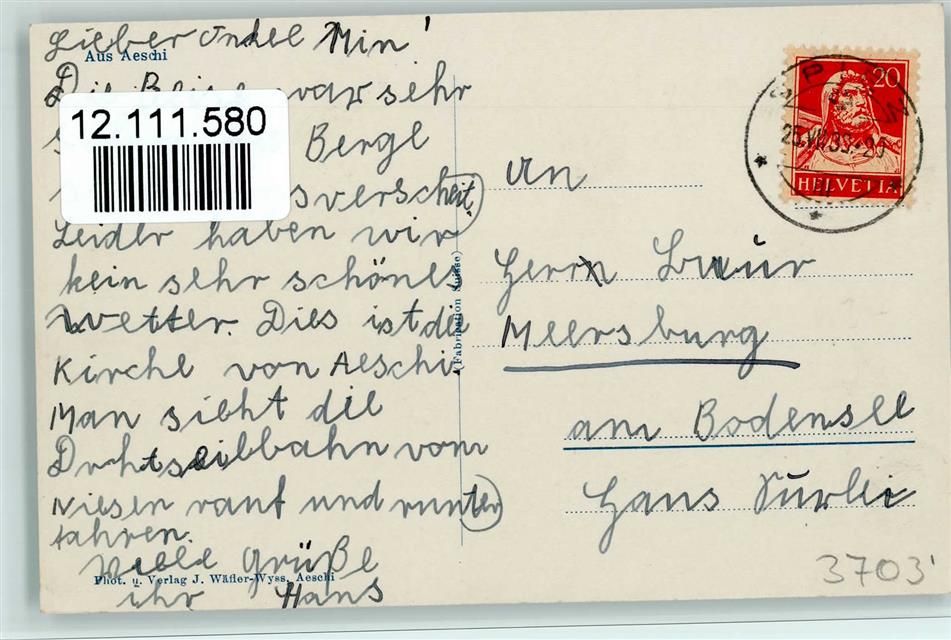 Lieber Onkel Min'
Aus Aeschi
Die war sehr
12.111.580
Berge
verscheit.
Leider haben wir
kein sehr schönes
Wetter. Dies ist die
Kirche von Aeschi.
Man sieht die
Drhtseilbahn vom
Niesen rauf und runter
fahren.
Viele Grüße
Phot. u. Verlag J. Wäfler-Wyss, Aeschi
ihr Hans
(Fabrication Suisse)
20
SPIEZ
25.VII.33.-20
HELVETIA
An
Herrn
Meersburg
am Bodensee
Haus
3703'